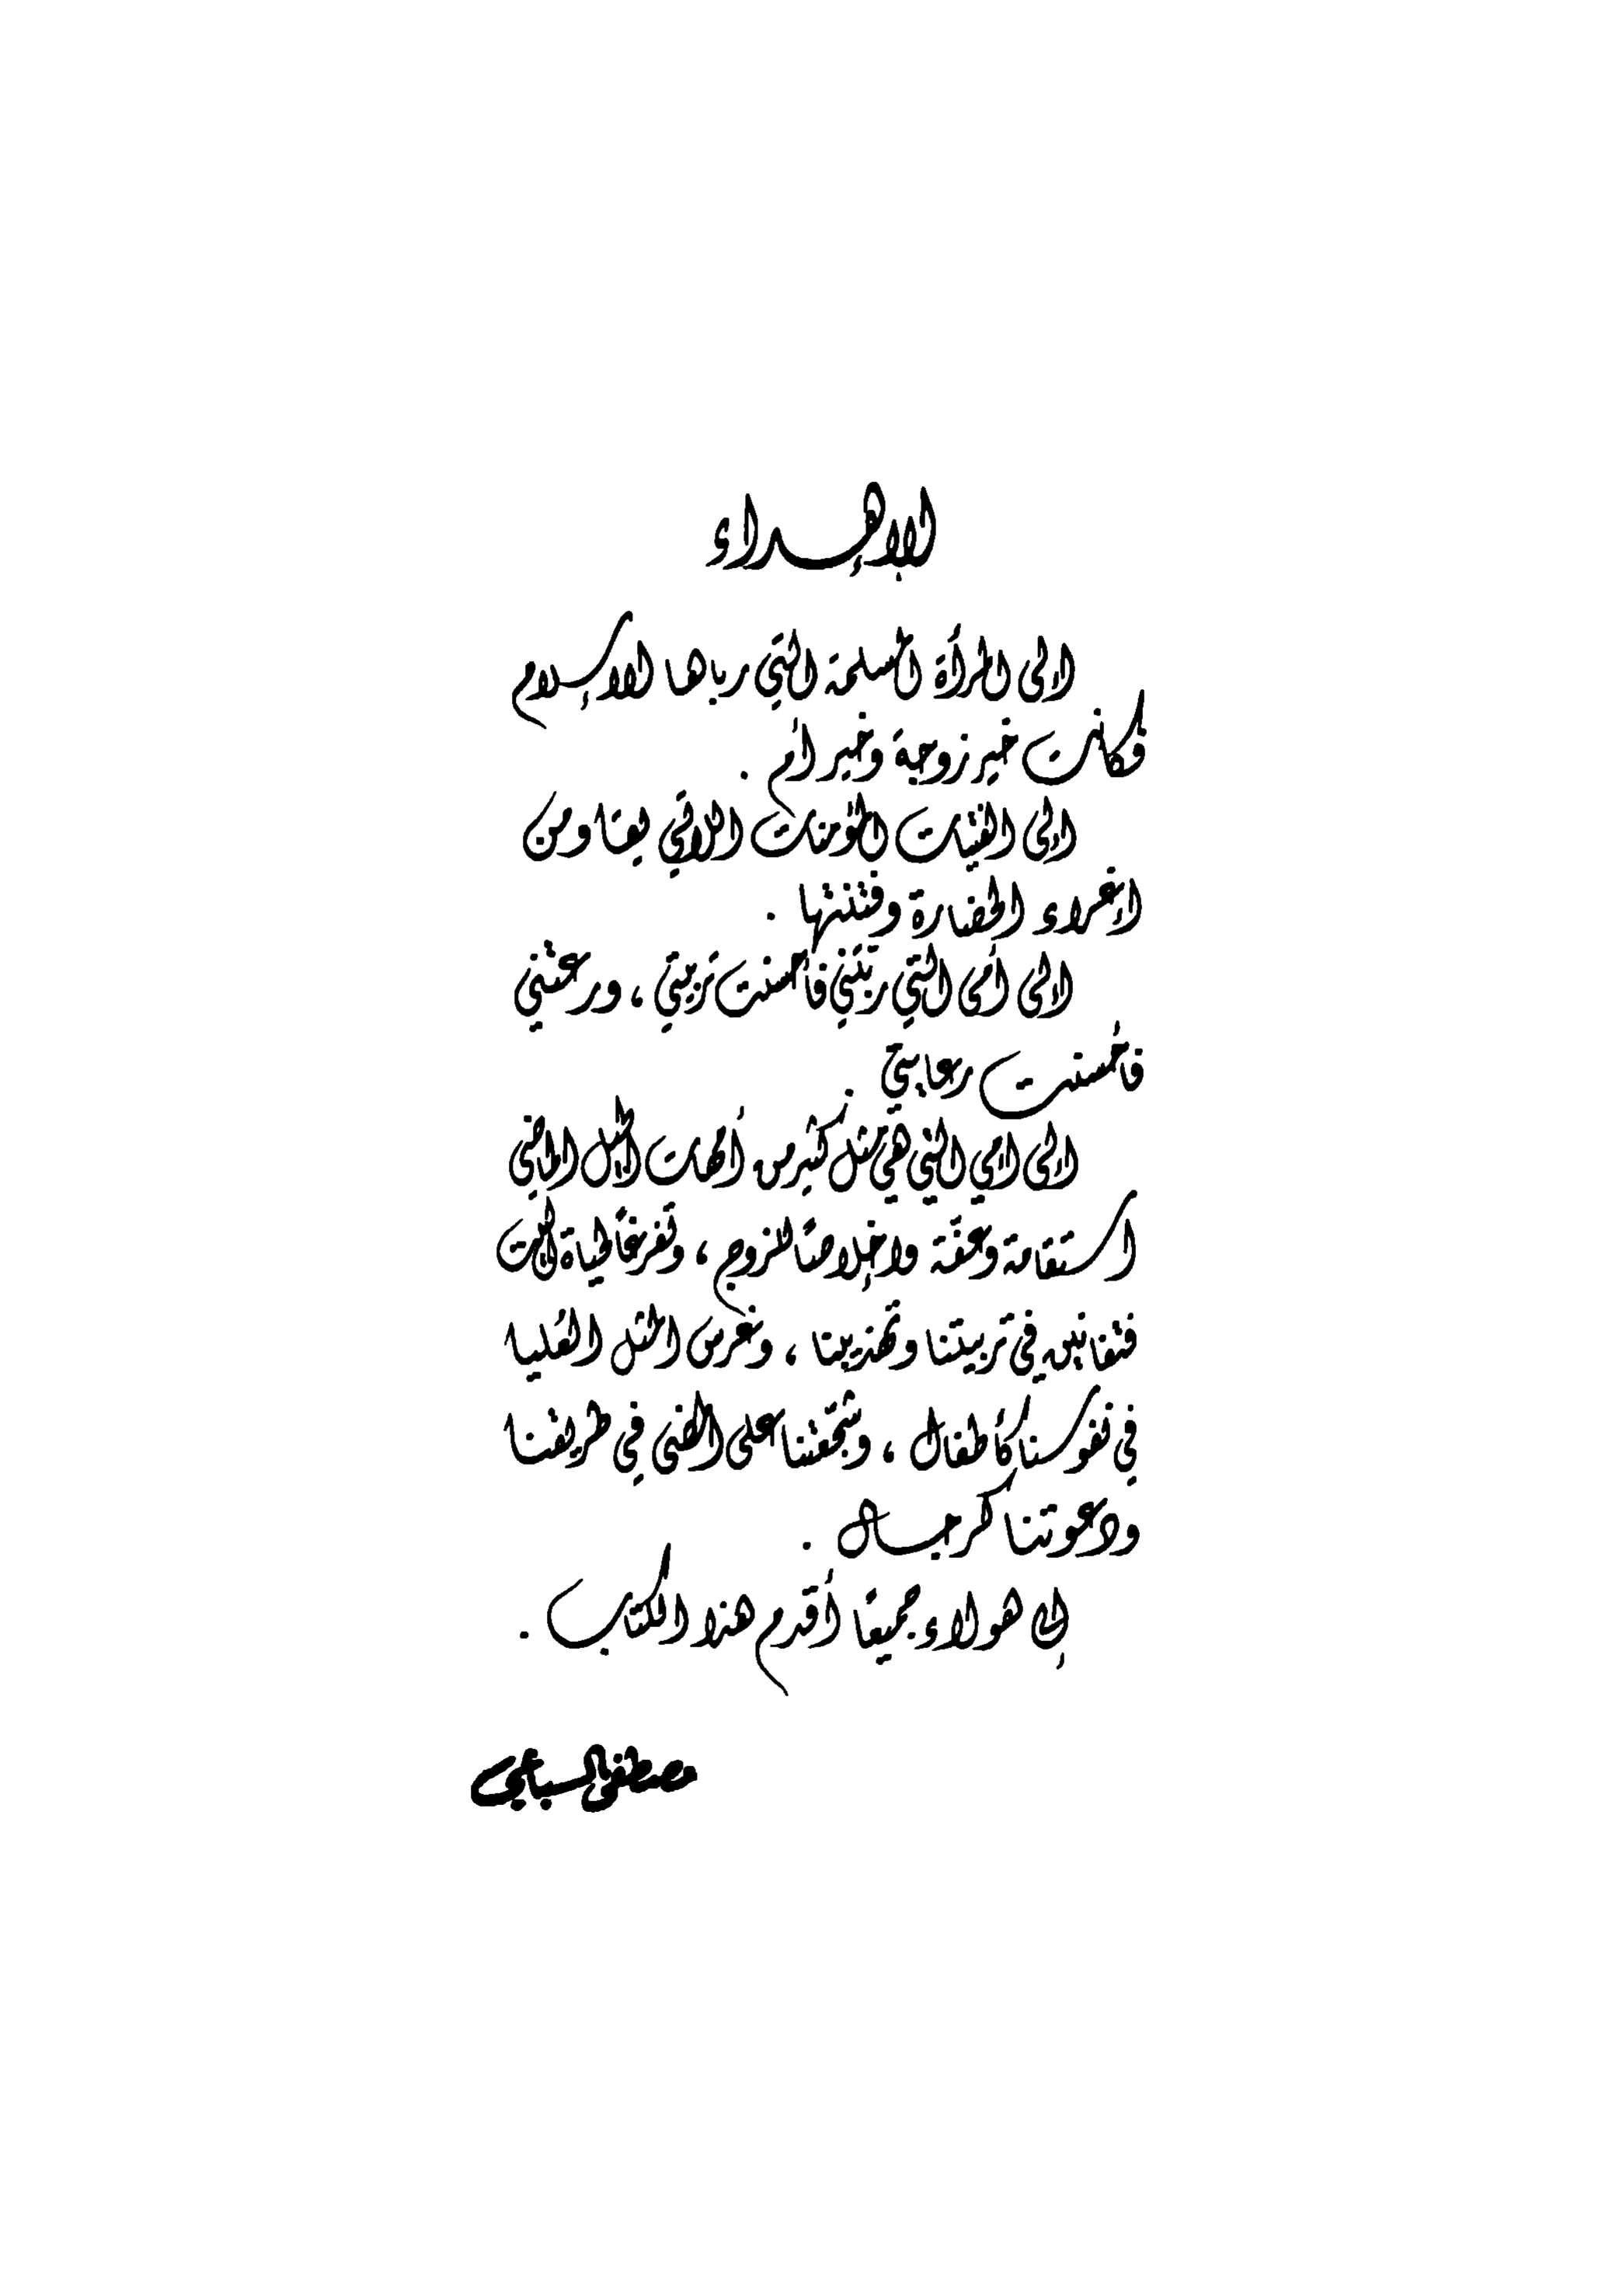 الإهداء
إلى المرأة المسلمة التي رباها الإسلام
فكانت خير زوجة وخير أم .
إلى الفتيات المؤمنات اللاتي يقاومن
إغراء الحضارة وفتنتها .
إلى أمي التي ربتني فأحسنت تربيتي ، ورعتني
فأحسنت رعايتي
إلى أمي التي هي مثل كثير من أمهات الجيل الماضي
استقامة وعفّة وإخلاصاً للزوج ، وتفرغاً لحياة البيت
فتفانين في تربيتنا وتهذيبنا ، وغرس المثل العُليا
في نفوسنا كأطفال ، وشجّعتنا على المضي في طريقنا
ودعوتنا كرجال .
إلى هولاء جميعًا أقدم هذا الكتاب .
مصطفى السباعي